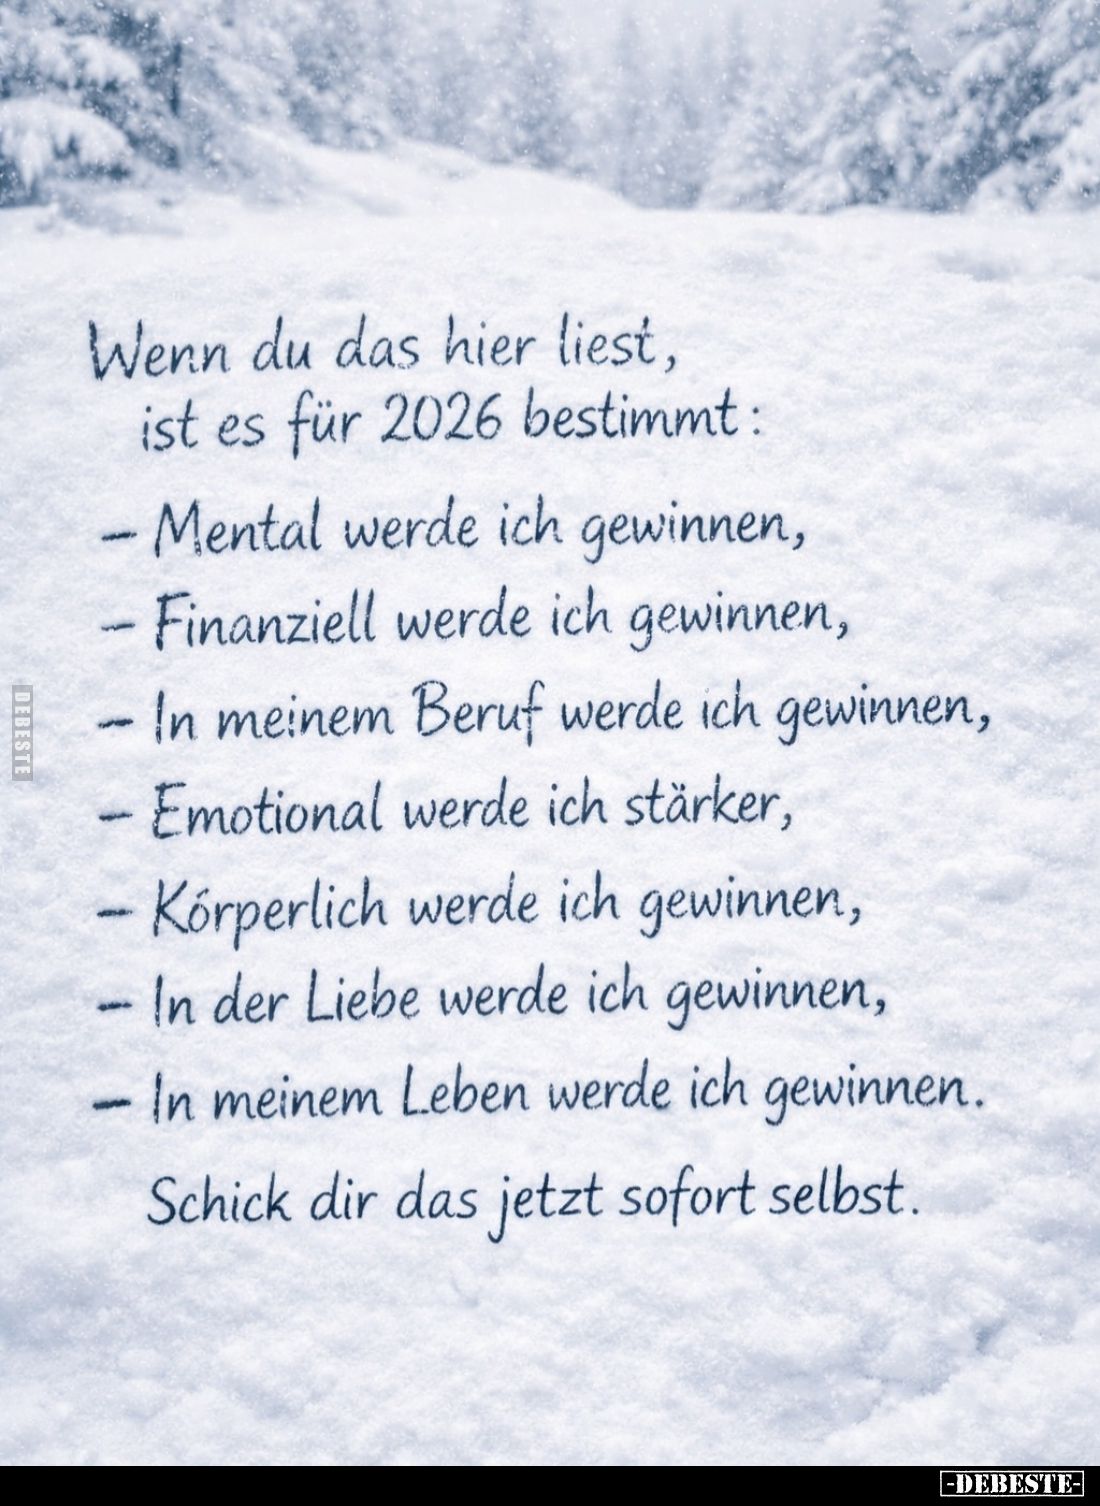 Wenn du das hier liest,
ist es für 2026 bestimmt:
– Mental werde ich gewinnen,
– Finanziell werde ich gewinnen,
– In meinem Beruf werde ich gewinnen,
– Emotional werde ich stärker,
– Körperlich werde ich gewinnen,
– In der Liebe werde ich gewinnen,
– In meinem Leben werde ich gewinnen.
Schick dir das jetzt sofort selbst.
DEBESTE
-DEBESTE-